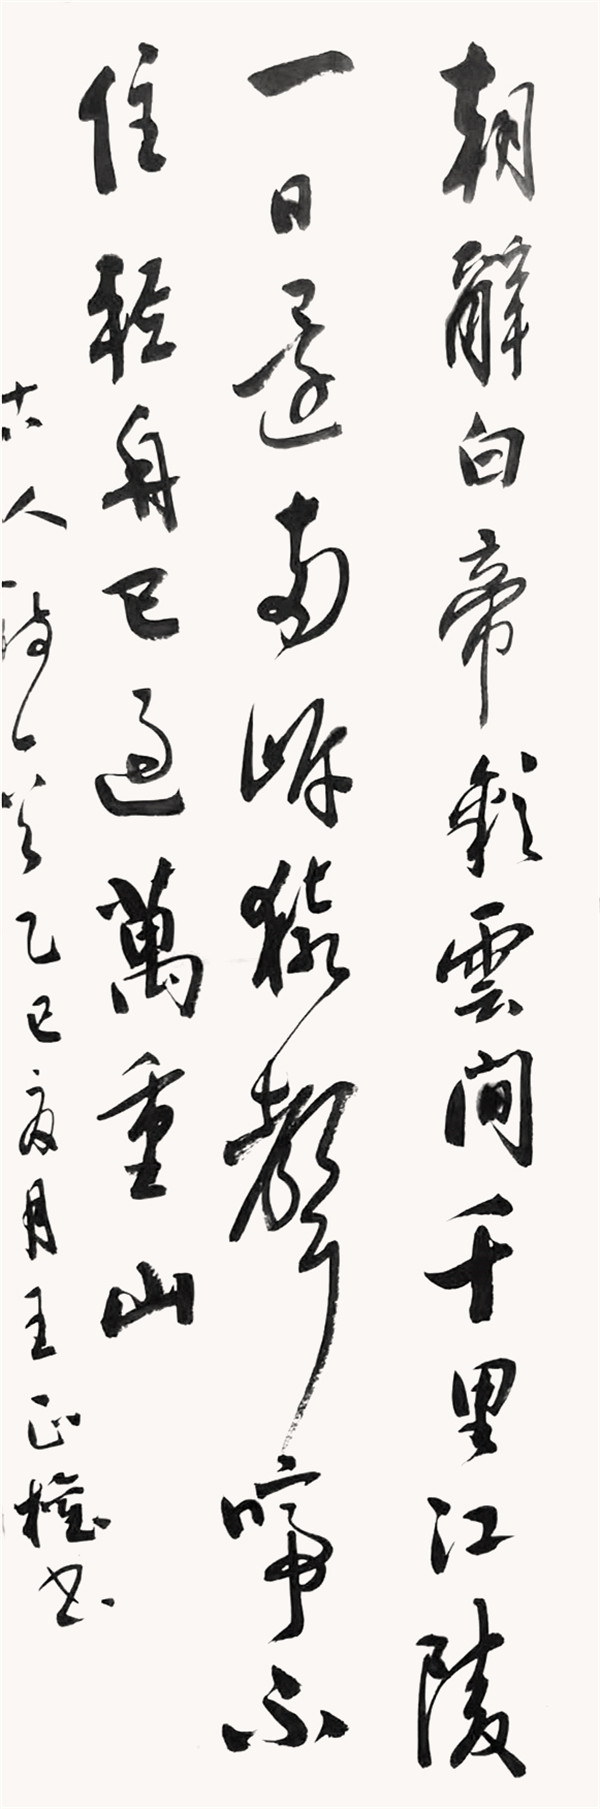 朝辭白帝彩雲間千里江陵
一日還兩岸猿聲啼不
住輕舟已過萬重山
古人詩一首乙巳夏月王正權書